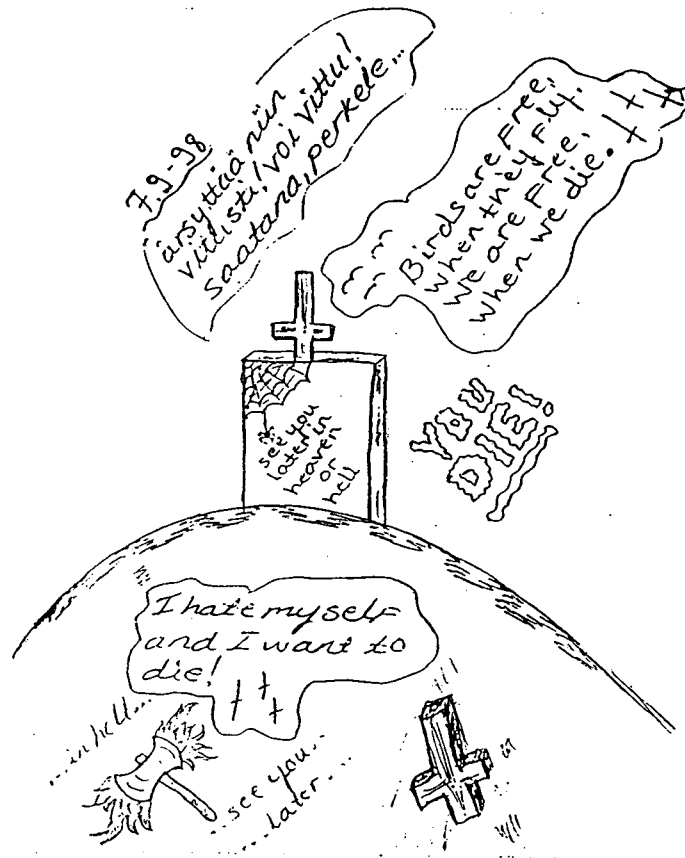 7.9-98
ärsyttää niin
vitusti! voi vittu!
saatana, perkele...
Birds are Free,
when they Fly.
We are Free,
when we die.
see you
later in
heaven
or
hell
YOU
DIE!
I hate myself
and I want to
die!
...in hell...
...see you...
...later...